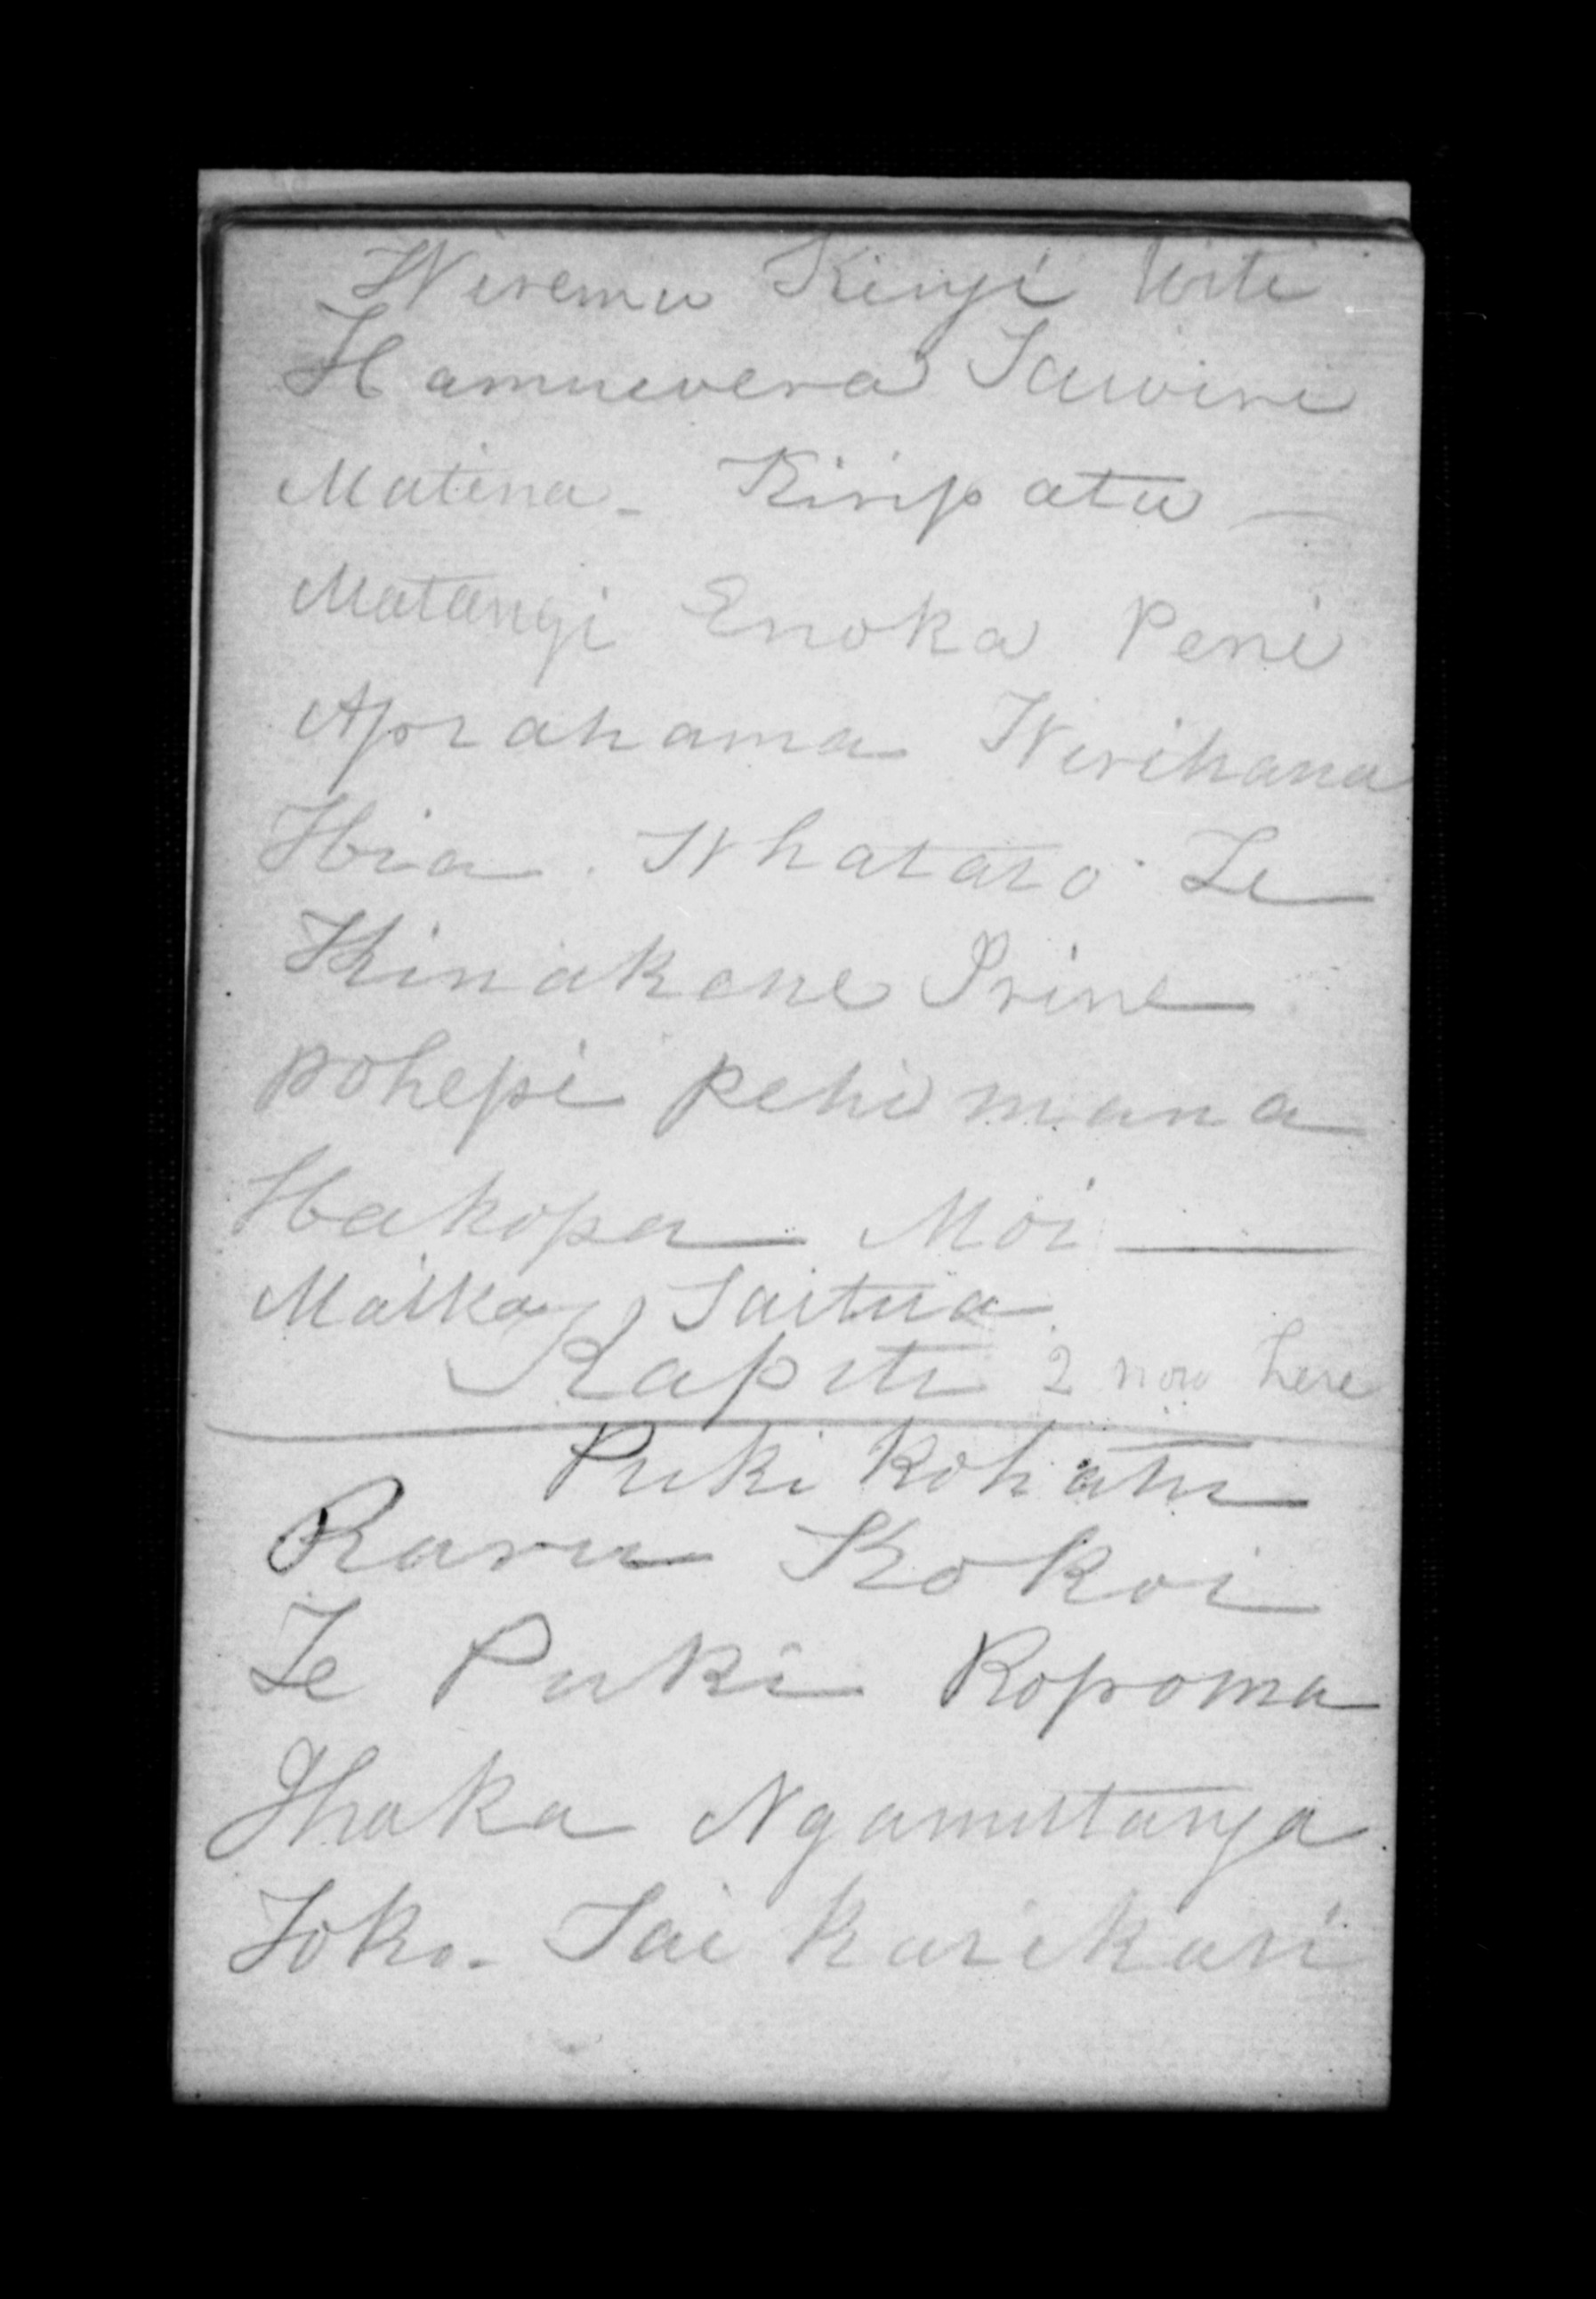 Wiremu Kingi Witi
Hamuevera Tawiri
Matena - Kiripatu —
Matangi Enoka Peni
Aprahama Wirihana
Hira. Whataro Te
Hinakone Prine
pohepi pehimana
Hakopa Moi —
Maika, Taitua
Kapiti 2 now here
Puki Kohatu
Raru Kokoi
Te Puki Ropoma
Ihaka Ngamutanga
Toko - Tai Karikari